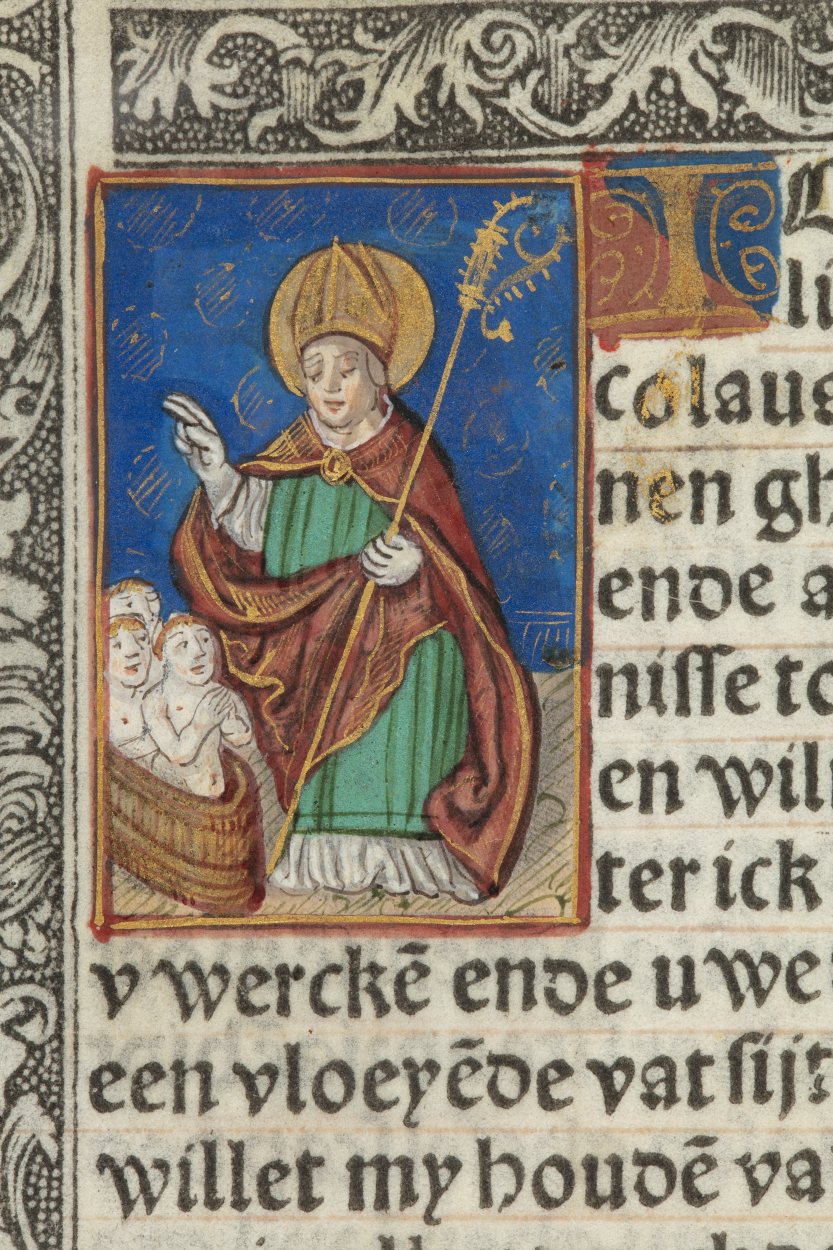 li
colaus
nen gh
ende a
nisse to
en wil
ter ick
v werckē ende u we
een vloeyēde vat sijt
willet my houdē va